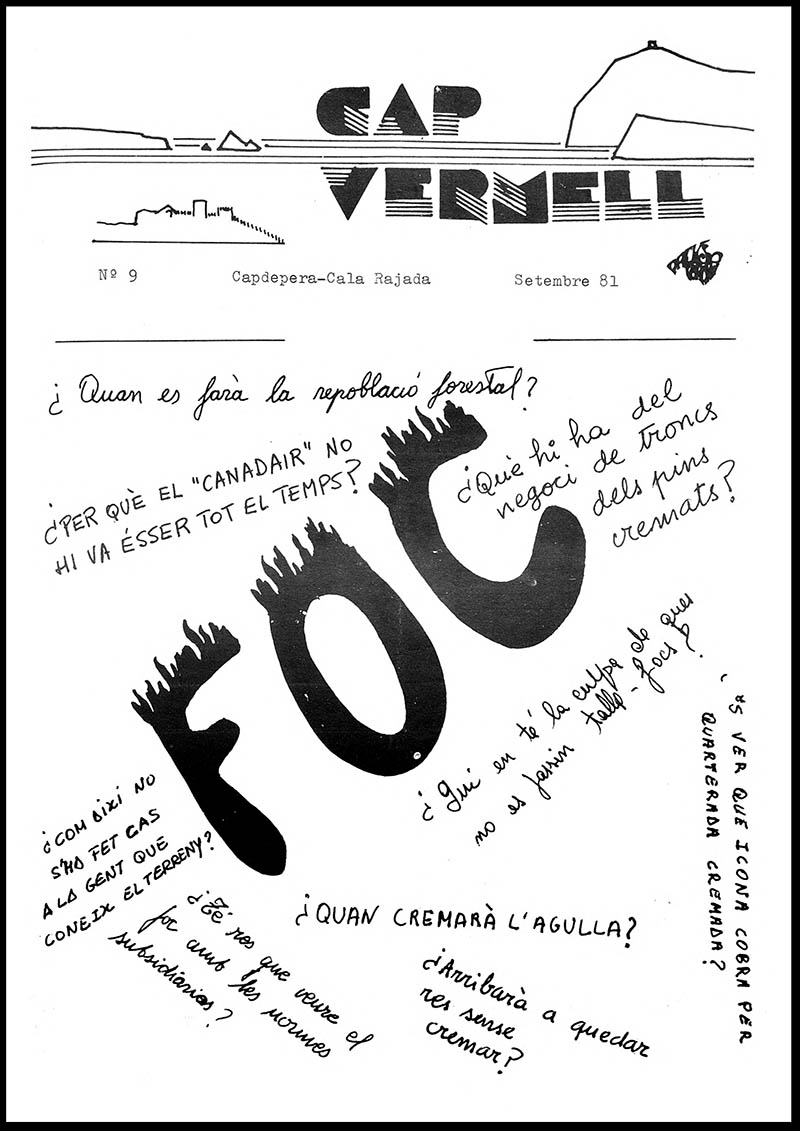 CAP
VERMELL
Nº 9
Capdepera-Cala Rajada
Setembre 81
¿ Quan es farà la repoblació forestal?
¿PER QUÈ EL "CANADAIR" NO
HI VA ÉSSER TOT EL TEMPS?
¿Què hi ha del
negoci de troncs
dels pins
cremats?
FOC
¿ Qui en té la culpa de ques
no es fassin talla-focs?
¿COM AIXÍ NO
S'HA FET CAS
A LA GENT QUE
CONEIX EL TERRENY?
¿Té res que veure el
foc amb les normes
subsidiàries?
¿QUAN CREMARÀ L'AGULLA?
¿Arribarà a quedar
res sense
cremar?
ÉS VER QUE ICONA COBRA PER
QUARTERADA CREMADA?